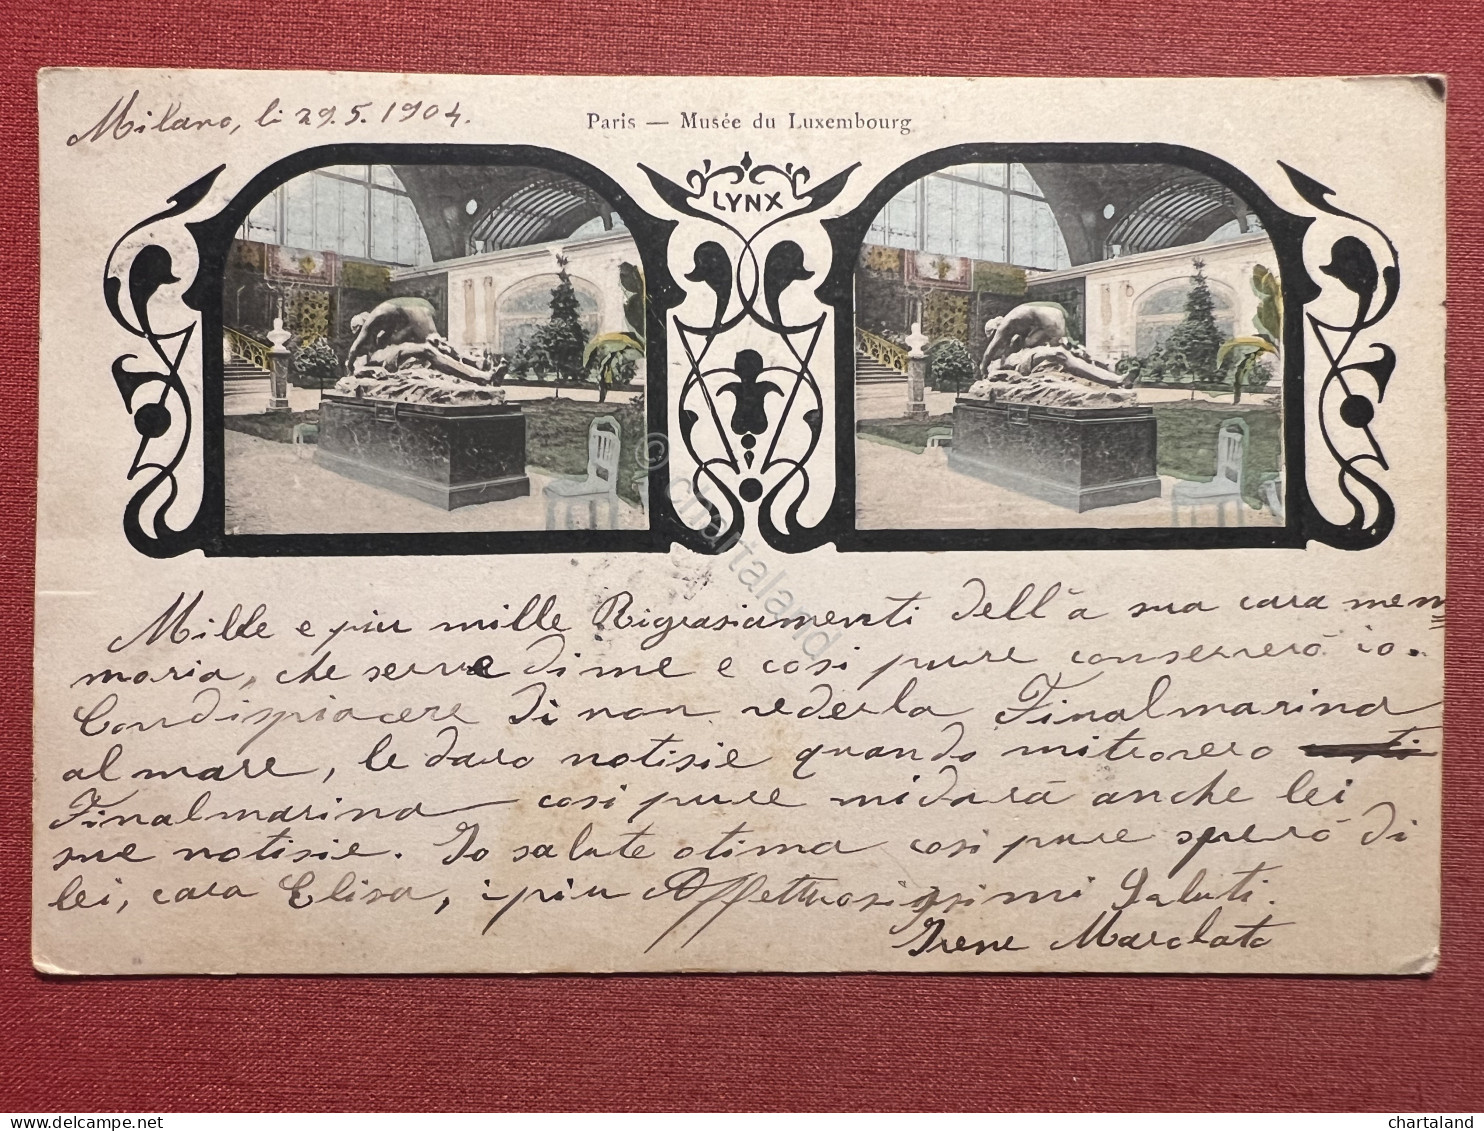 Milano, li 29.5.1904.
Paris — Musée du Luxembourg
LYNX
Mille e piu mille Rigrasiamenti dell'a sua cara mem
moria, che serve di me e cosi pure conserrerò io.
Condispiacere di non rederla Finalmarina
al mare, le daro notisie quando mitrorero
Finalmarina cosi pure midarà anche lei
sue notisie. Io salute otima cosi pure sperò di
lei, cara Elisa, i piu Affettuosissimi Saluti.
Irene Marolato
© chartaland
chartaland
delcampe.net